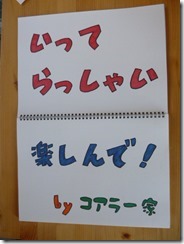 いって
らっしゃい
楽しんで!
by コアラー家